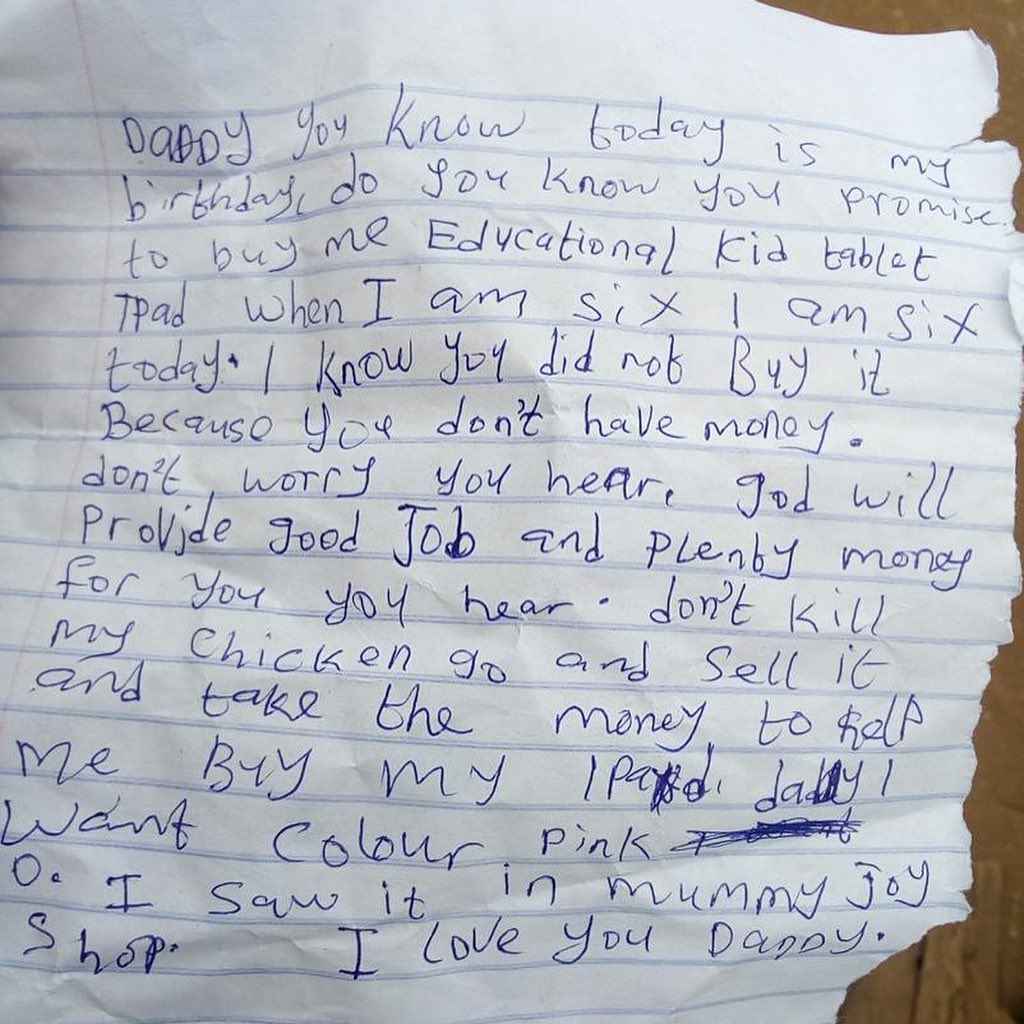 DADDY you know today is my
birthday, do you know you promise
to buy me Educational kid tablet
Ipad when I am six I am six
today. I know you did not Buy it
Because you don't have money.
don't, worry you hear, god will
Provide good Job and Plenty money
for you you hear. don't kill
my Chicken go and Sell it
and take the money, to help
me Buy my IPad. daddy I
Want Colour, Pink
O. I saw it in mummy Joy
Shop. I Love you Daddy.